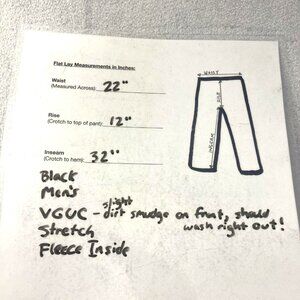 Flat Lay Measurements in Inches:
Waist
(Measured Across): 22"
Rise
(Crotch to top of pant): 12"
Inseam
(Crotch to hem): 32"
WAIST
RISE
INSEAM
Black
Men's
slight
VGUC - dirt smudge on front, should
wash right out!
Stretch
Fleece Inside